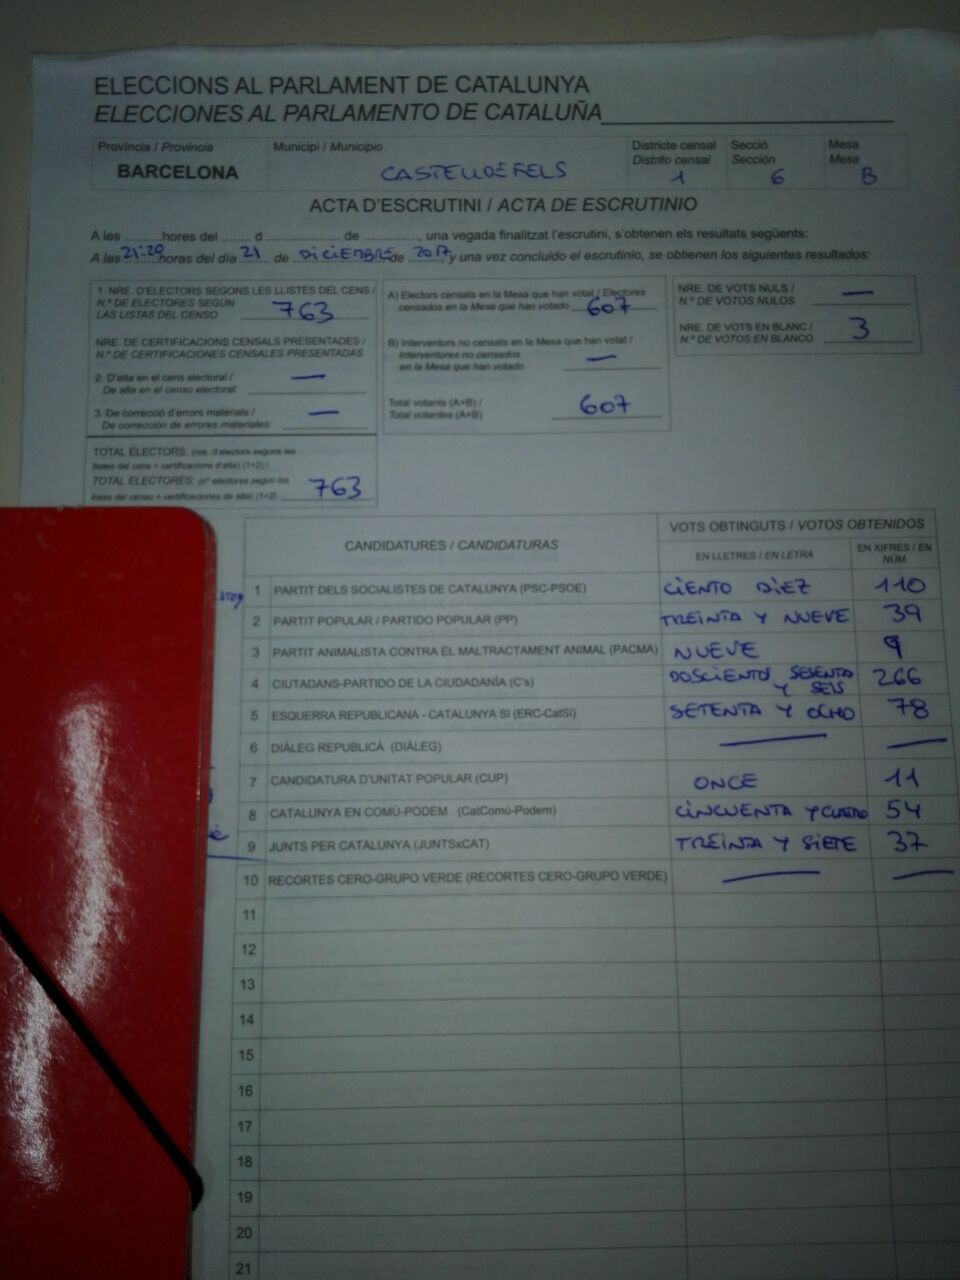 ELECCIONS AL PARLAMENT DE CATALUNYA
ELECCIONES AL PARLAMENTO DE CATALUÑA
Província / Provincia
BARCELONA
Municipi / Municipio
CASTELLDEFELS
Districte censal
Distrito censal
1
Secció
Sección
6
Mesa
Mesa
B
ACTA D'ESCRUTINI / ACTA DE ESCRUTINIO
A les ..........hores del ........ d .................... de ..............., una vegada finalitzat l'escrutini, s'obtenen els resultats següents:
A las 21:20 horas del día 21 de DICIEMBRE de 2017, y una vez concluido el escrutinio, se obtienen los siguientes resultados:
1. NRE. D'ELECTORS SEGONS LES LLISTES DEL CENS /
N.º DE ELECTORES SEGÚN
LAS LISTAS DEL CENSO 763
NRE. DE CERTIFICACIONS CENSALS PRESENTADES /
N.º DE CERTIFICACIONES CENSALES PRESENTADAS
2. D'alta en el cens electoral / —
De alta en el censo electoral:
3. De correcció d'errors materials / —
De corrección de errores materiales:
TOTAL ELECTORS: (nre. d'electors segons les
llistes del cens + certificacions d'alta) (1+2) /
TOTAL ELECTORES: (nº electores según las
listas del censo + certificaciones de alta) (1+2) 763
A) Electors censats en la Mesa que han votat / Electores
censados en la Mesa que han votado 607
B) Interventors no censats en la Mesa que han votat /
Interventores no censados —
en la Mesa que han votado
Total votants (A+B) /
Total votantes (A+B) 607
NRE. DE VOTS NULS /
N.º DE VOTOS NULOS —
NRE. DE VOTS EN BLANC /
N.º DE VOTOS EN BLANCO 3
CANDIDATURES / CANDIDATURAS
VOTS OBTINGUTS / VOTOS OBTENIDOS
EN LLETRES / EN LETRA
EN XIFRES / EN NÚM.
1 PARTIT DELS SOCIALISTES DE CATALUNYA (PSC-PSOE) CIENTO DIEZ 110
2 PARTIT POPULAR / PARTIDO POPULAR (PP) TREINTA Y NUEVE 39
3 PARTIT ANIMALISTA CONTRA EL MALTRACTAMENT ANIMAL (PACMA) NUEVE 9
4 CIUTADANS-PARTIDO DE LA CIUDADANÍA (C's) DOSCIENTOS SESENTA Y SEIS 266
5 ESQUERRA REPUBLICANA - CATALUNYA SI (ERC-CatSí) SETENTA Y OCHO 78
6 DIÀLEG REPUBLICÀ (DIÀLEG) — —
7 CANDIDATURA D'UNITAT POPULAR (CUP) ONCE 11
8 CATALUNYA EN COMÚ-PODEM (CatComú-Podem) CINCUENTA Y CUATRO 54
9 JUNTS PER CATALUNYA (JUNTSxCAT) TREINTA Y SIETE 37
10 RECORTES CERO-GRUPO VERDE (RECORTES CERO-GRUPO VERDE) — —
11
12
13
14
15
16
17
18
19
20
21